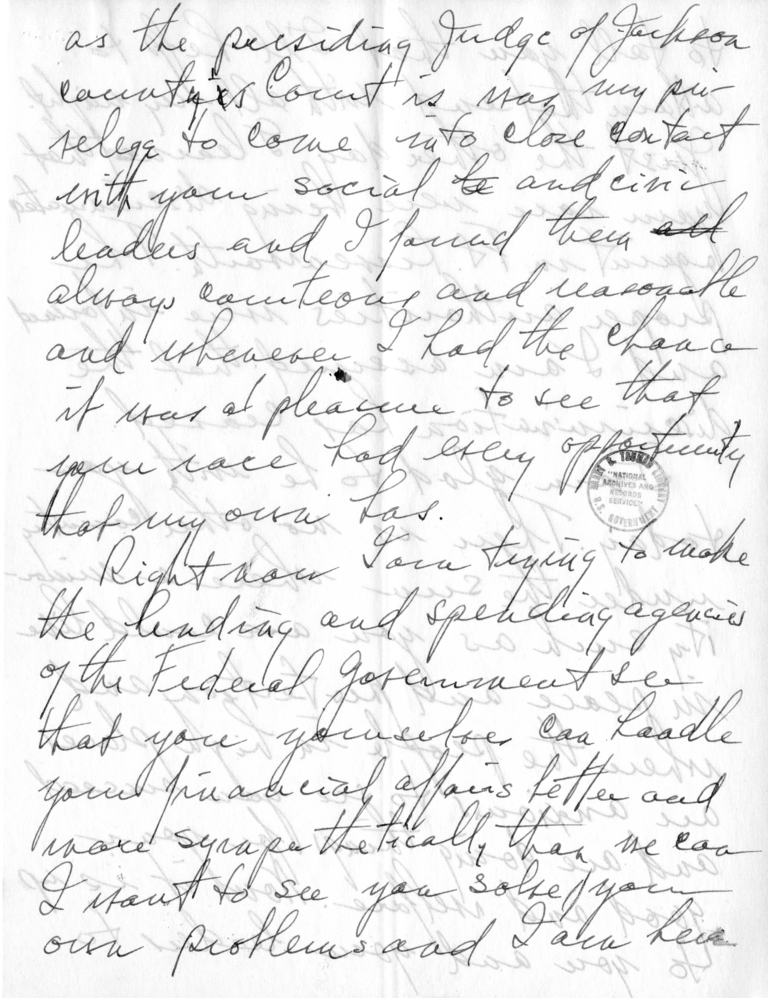 as the presiding Judge of Jackson
county's Court is was my pri-
velege to come into close contact
with your social to and civic
leaders and I found them all
always courteous and reasonable
and whenever I had the chance
it was a pleasure to see that
your race had every opportunity
that my own has.
HARRY S. TRUMAN LIBRARY
"NATIONAL
ARCHIVES AND
RECORDS
SERVICE"
U.S. GOVERNMENT
Right now I am trying to make
the lending and spending agencies
of the Federal Government see
that you yourselves can handle
your financial affairs better and
more sympathetically than we can
I want to see you solve your
own problems and I am here